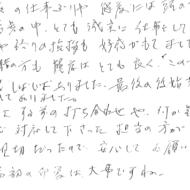 の仕事ぶりや 態度には頭が
の中、とても誠実に仕事をして
や 終りの挨拶も 好感がもてまし
の方も 態度は とても良く、この
しばしばありました。最後の後始末
ありました。
する事の打ち合わせや、何か
対応して下さった 担当の方が
親切だったので 安心して お願い
の印象は 大事ですね。